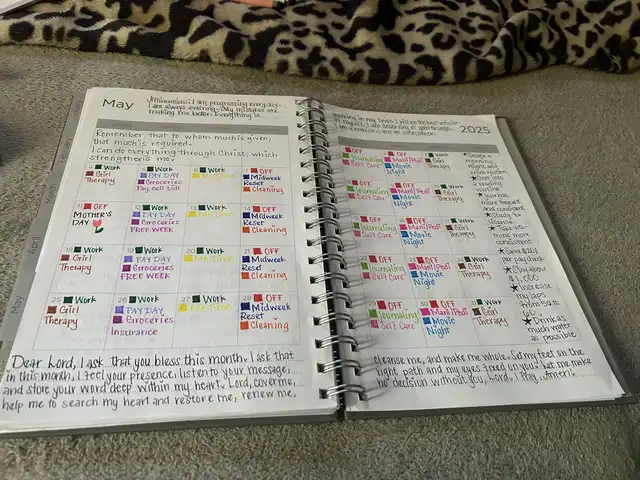 May
Affirmations: I am progressing everyday.
I am always evolving. My mistakes are
making me better. Everything is
Remember that to whom much is given,
that much is required.
I can do everything through Christ, which
strengthens me.
Work
Girl
Therapy
Work
PAY DAY
Groceries
Pay call bill
Work
Me Time
OFF
Midweek
Reset
Cleaning
11
OFF
MOTHER'S
DAY
12
Work
PAY DAY
Groceries
FREE WEEK
13
Work
Me Time
OFF
Midweek
Reset
Cleaning
18
Work
Girl
Therapy
19
Work
PAY DAY
Groceries
FREE WEEK
20
Work
Me Time
21
OFF
Midweek
Reset
Cleaning
25
Work
Girl
Therapy
26
Work
PAY DAY
Groceries
Insurance
27
Work
Me Time
28
OFF
Midweek
Reset
Cleaning
Dear Lord, I ask that you bless this month. I ask that
in this month, I feel your presence, listen to your message,
and store your word deep within my heart. Lord, cover me,
help me to search my heart and restore me, renew me,
2025
OFF
Journaling
Self Care
OFF
Mani/Pedi
Movie
Night
Work
Girl
Therapy
OFF
Journaling
Self Care
OFF
Mani/Pedi
Movie
Night
Work
Girl
Therapy
OFF
Journaling
Self Care
OFF
Mani/Pedi
Movie
Night
Work
Girl
Therapy
22
OFF
Journaling
Self Care
23
OFF
Mani/Pedi
Movie
Night
24
Work
Girl
Therapy
29
OFF
Journaling
Self Care
30
OFF
Mani/Pedi
Movie
Night
31
Work
Girl
Therapy
Create a
morning
night and
routine
reading
routine
Journal
more
Study for
more
consistent
Save $
per pay check
Pay above
$1,000
Increase
my laps
from 15 to
Drink as
much water
as possible
cleanse me, and make me whole. Set my feet on the
right path and my eyes fixed on you. Let me make
no decision without you, Lord, I Pray, Amen!
April
May